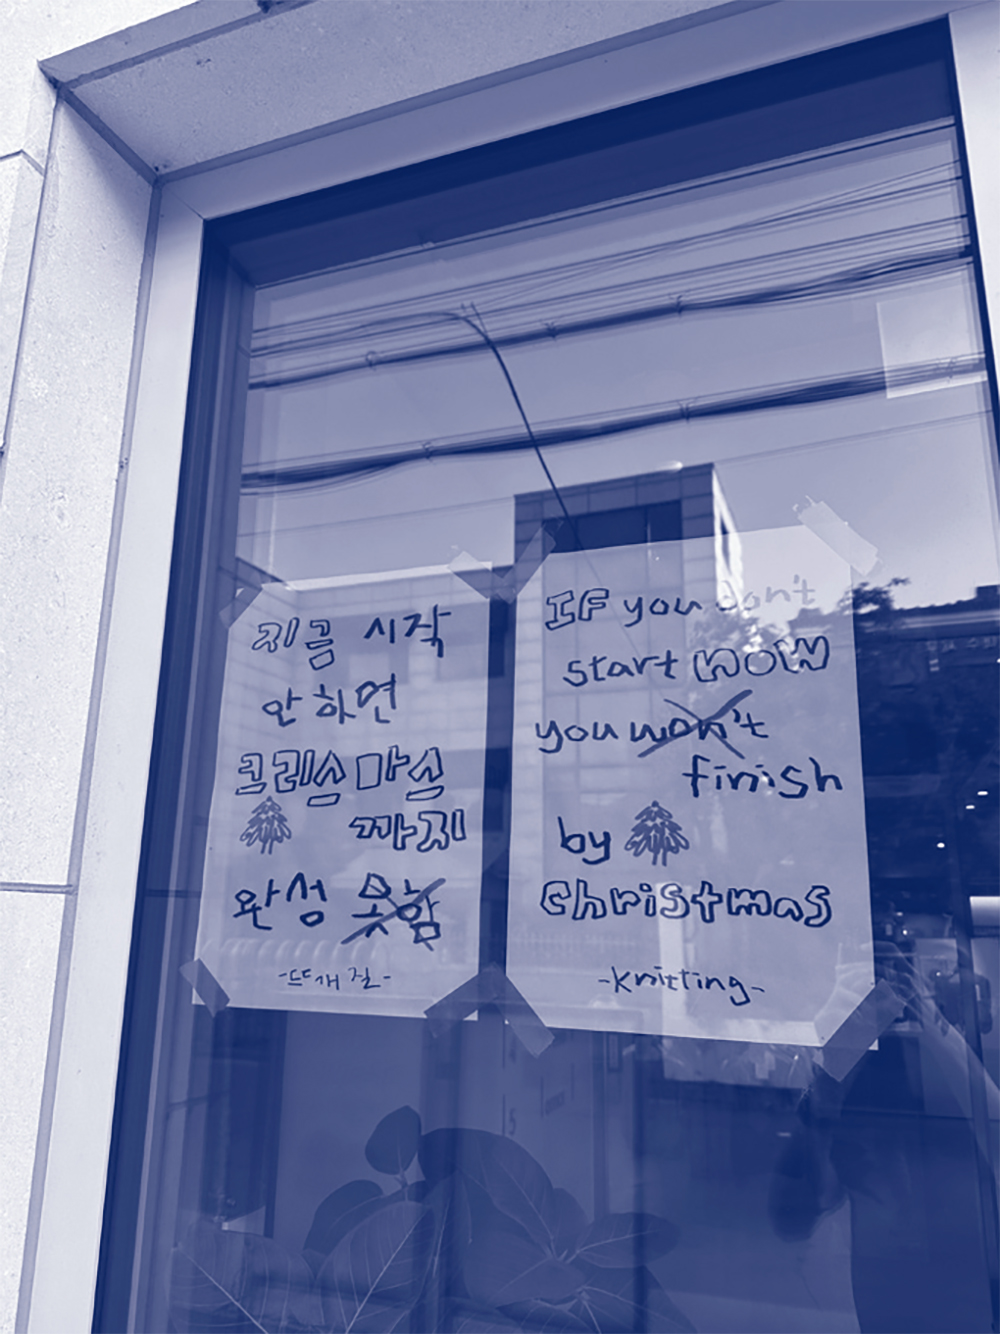 지금 시작
안 하면
크리스마스
까지
완성 못함
-뜨개질-
IF you don't
start NOW
you won't
finish
by
Christmas
-Knitting-